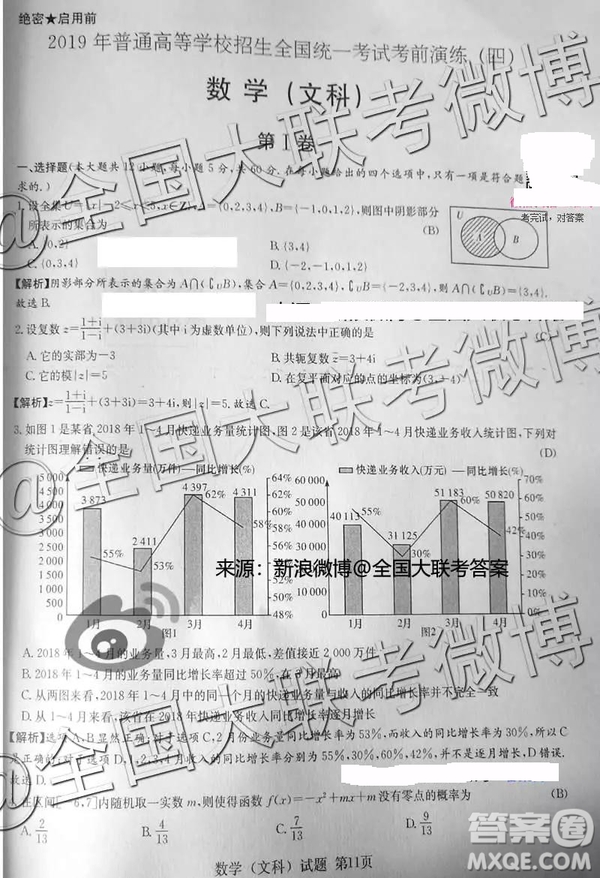 绝密★启用前
2019 年普通高等学校招生全国统一考试考前演练(四)
数学(文科)
第Ⅰ卷
一、选择题(本大题共12小题,每小题5分,共60分.在每小题给出的四个选项中,只有一项是符合题
求的.)
考完试,对答案
1.设全集U={x|-2≤x≤5,x∈Z},A={0,2,3,4},B={-1,0,1,2},则图中阴影部分
所表示的集合为 (B)
U
A B
A.{0,2} B.{3,4}
C.{0,3,4} D.{-2,-1,0,1,2}
【解析】阴影部分所表示的集合为A∩(∁UB),集合A={0,2,3,4},∁UB={-2,3,4,5},则A∩(∁UB)={3,4}.
故选B.
2.设复数z=(1+i)/(1-i)+(3+3i)(其中i为虚数单位),则下列说法中正确的是
A.它的实部为-3 B.共轭复数z̄=3+4i
C.它的模|z|=5 D.在复平面对应的点的坐标为(3,-4)
【解析】z=(1+i)/(1-i)+(3+3i)=3+4i,则|z|=5,故选C.
3.如图1是某省2018年1~4月快递业务量统计图,图2是该省2018年1~4月快递业务收入统计图,下列对
统计图理解错误的是 (D)
快递业务量(万件) 同比增长(%) 快递业务收入(万元) 同比增长(%)
5 000
4 500
4 000
3 500
3 000
2 500
2 000
1 500
1 000
500
0
3 873 2 411 4 397 4 311
55% 53% 62% 58%
64%
62%
60%
58%
56%
54%
52%
50%
48%
1月 2月 3月 4月
图1
60 000
50 000
40 000
30 000
20 000
10 000
0
40 113 31 125 51 183 50 820
55% 30% 60% 42%
80%
70%
60%
50%
40%
30%
20%
10%
0%
1月 2月 3月 4月
图2
来源:新浪微博@全国大联考答案
A.2018年1~4月的业务量,3月最高,2月最低,差值接近2 000万件
B.2018年1~4月的业务量同比增长率超过50%,在3月最高
C.从两图来看,2018年1~4月中的同一个月的快递业务量与收入的同比增长率并不完全一致
D.从1~4月来看,该省在2018年快递业务收入同比增长率逐月增长
【解析】选项A,B显然正确;对于选项C,2月份业务量同比增长率为53%,而收入的同比增长率为30%,所以C
是正确的;对于选项D,1,2,3,4月收入的同比增长率分别为55%,30%,60%,42%,并不是逐月增长,D错误.
故选D.
4.在区间[-6,7]内随机取一实数m,则函数f(x)=-x²+mx+m没有零点的概率为 (B)
A.2/13 B.4/13 C.7/13 D.9/13
数学(文科)试题 第11页
@全国大联考微博
@全国大联考微博
@全国大联考微博
答案圈
MXQE.COM